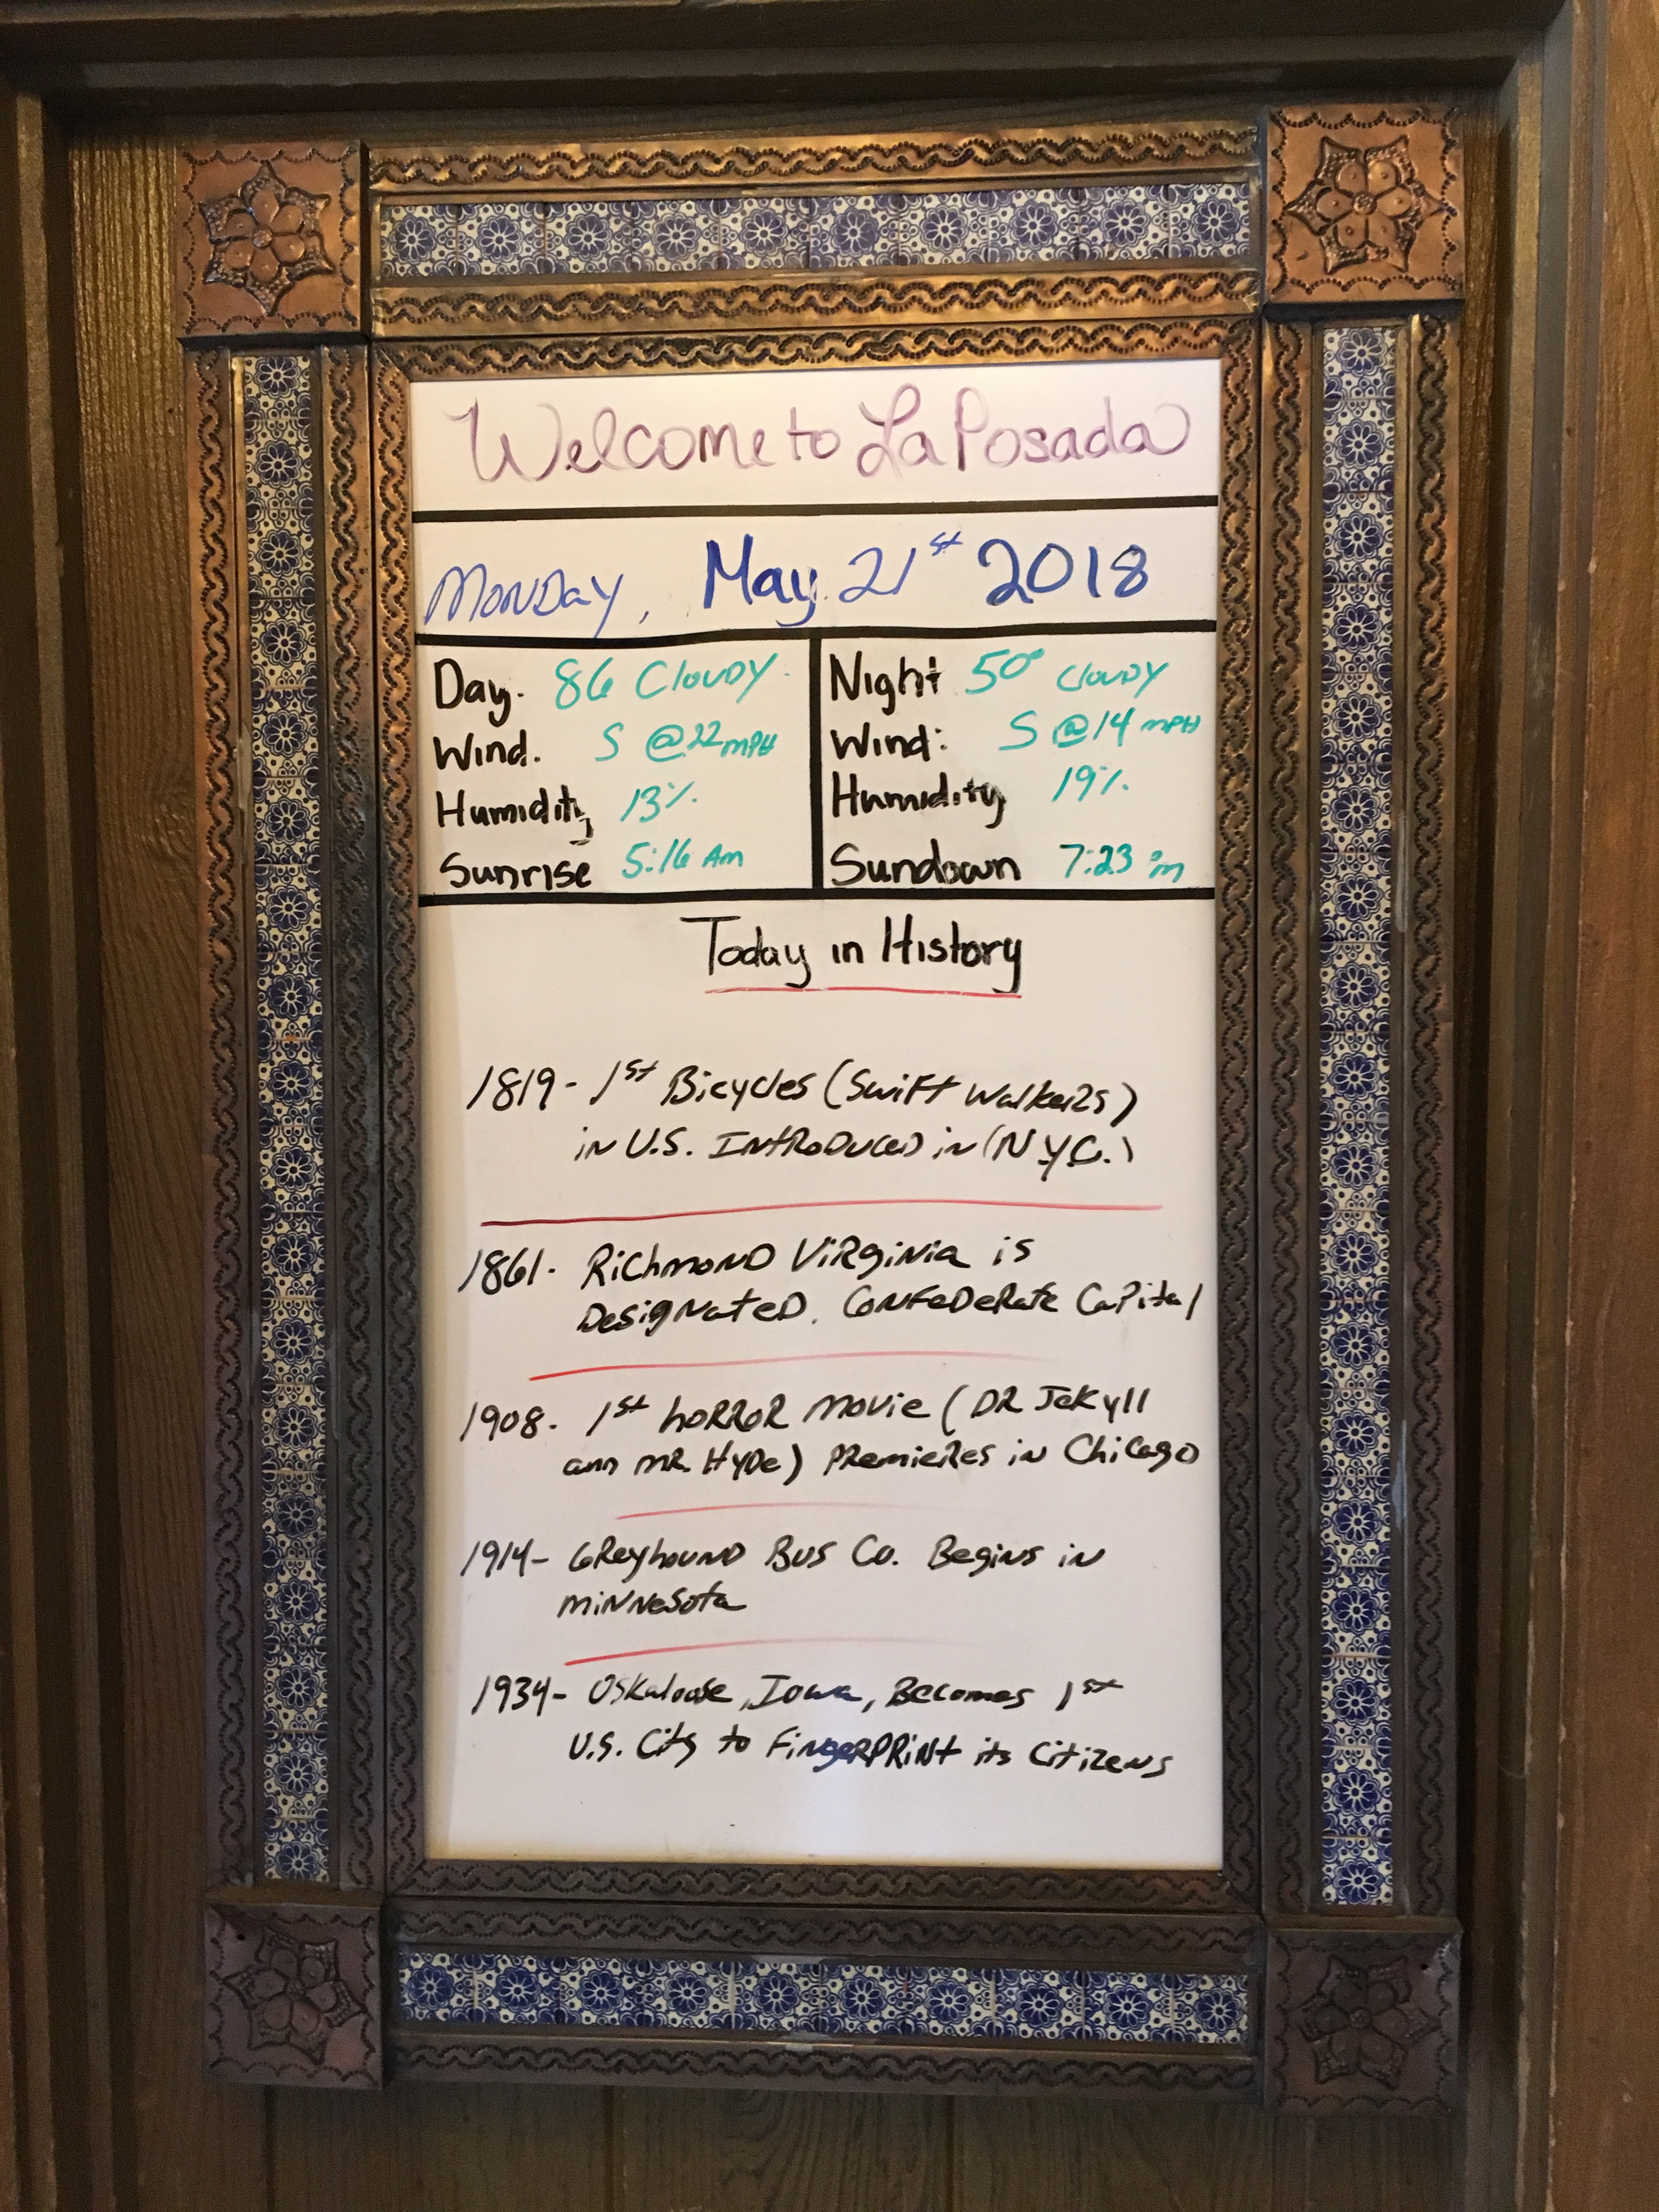 Welcome to La Posada
Monday, May 21st 2018
Day. 86 Cloudy
Wind. S @ 22 mph
Humidity 13%
Sunrise 5:16 Am
Night 50° Cloudy
Wind: S @ 14 mph
Humidity 19%
Sundown 7:23 pm
Today in History
1819- 1st Bicycles (Swift Walkers)
in U.S. Introduced in (N.Y.C.)
1861- Richmond Virginia is
Designated. Confederate Capital
1908- 1st horror movie (DR Jekyll
and MR. Hyde) Premieres in Chicago
1914- Greyhound Bus Co. Begins in
Minnesota
1934- Oskaloose, Iowa, Becomes 1st
U.S. City to FingerPRint its Citizens